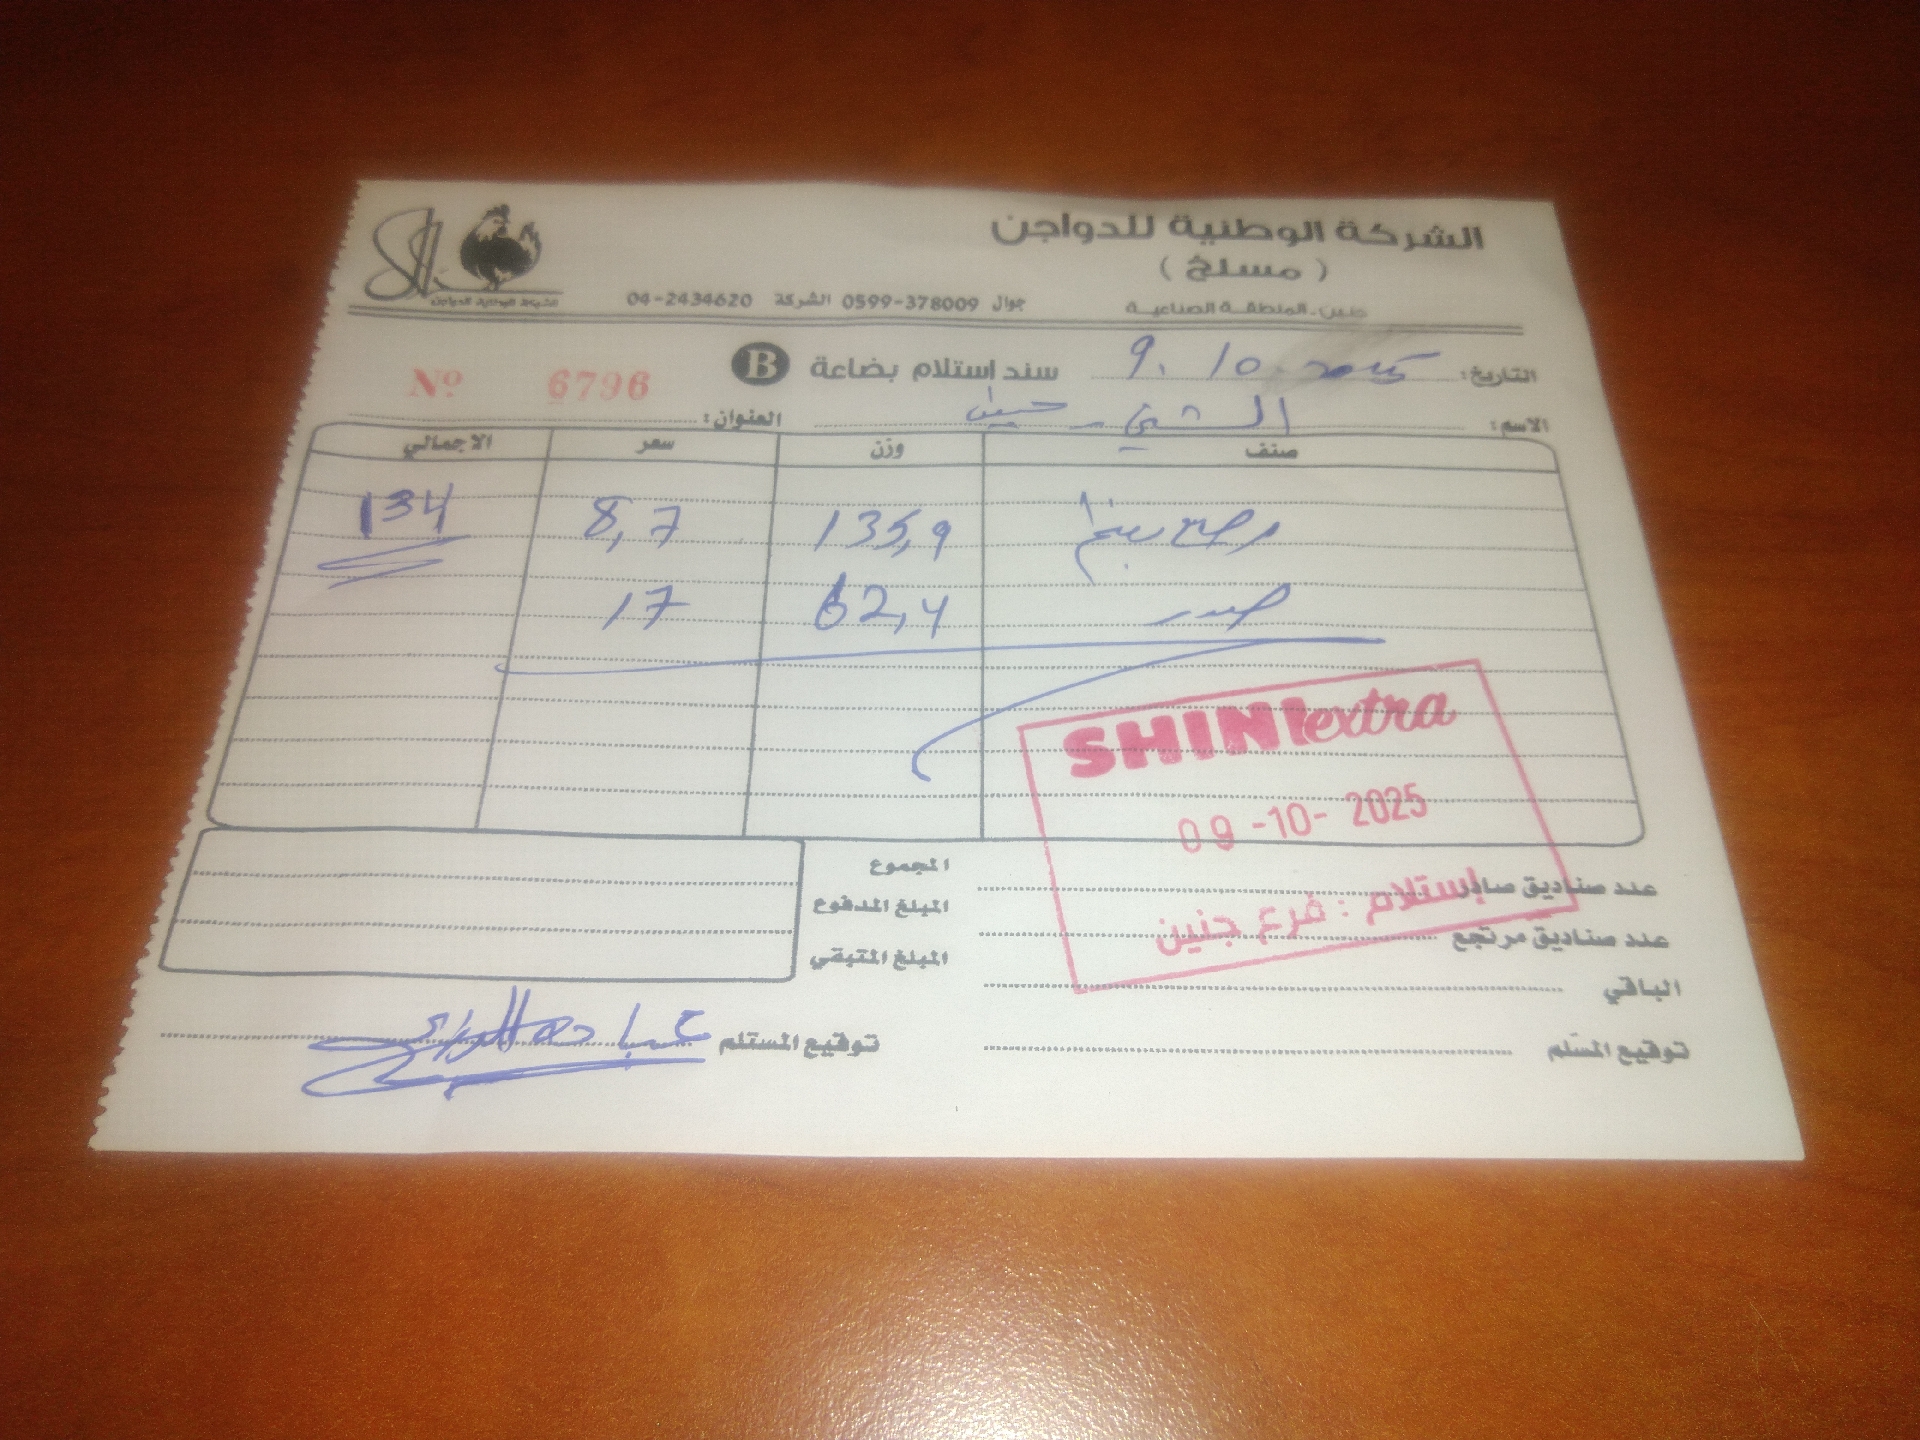 الشركة الوطنية للدواجن
( مسلخ )
جنين. المنطقة الصناعية
جوال 0599-378009 الشركة 04-2434620
الشركة الوطنية للدواجن
التاريخ: 9. 10
سند استلام بضاعة B
Nº 6796
الاسم: الشني - جنين
العنوان:
صنف وزن سعر الاجمالي
135,9 8,7 134
صدر 62,4 17
SHINI extra
09-10-2025
استلام : فرع جنين
عدد صناديق صادر
عدد صناديق مرتجع
الباقي
المجموع
المبلغ المدفوع
المبلغ المتبقي
توقيع المسلّم
توقيع المستلم